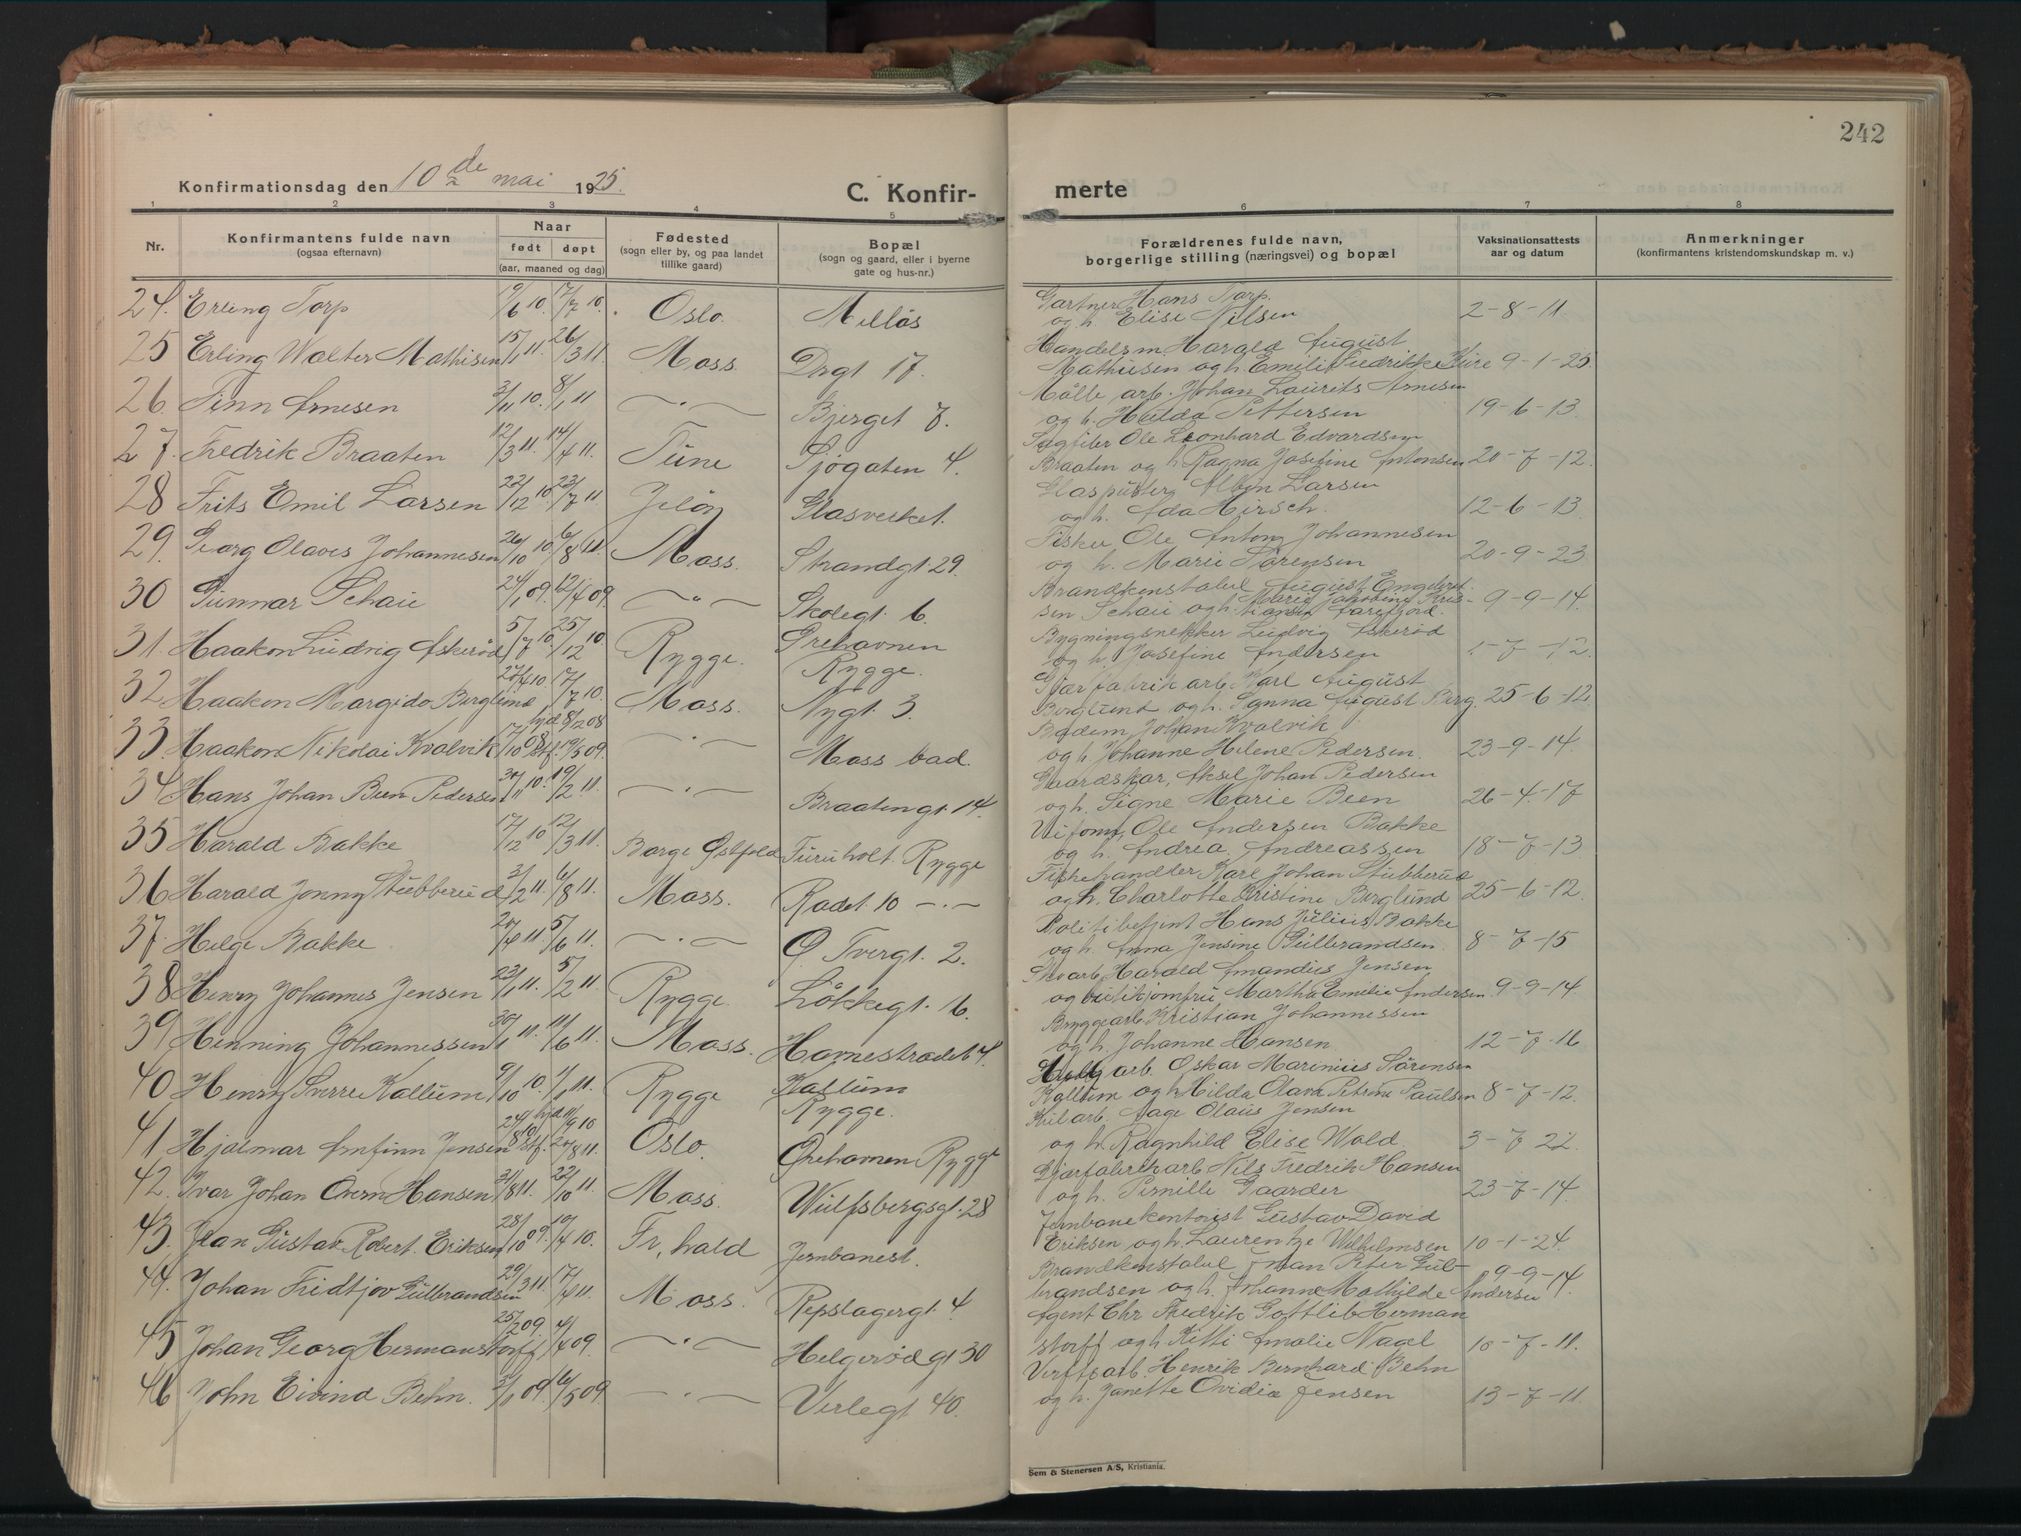 242
Konfirmationsdag den 10de mai 1925.
C. Konfir-
merte
1 2 3 4 5 6 7 8
Nr.
Konfirmantens fulde navn
(ogsaa efternavn)
Naar
født døpt
(aar, maaned og dag)
Fødested
(sogn eller by, og paa landet
tillike gaard)
Bopæl
(sogn og gaard, eller i byerne
gate og hus-nr.)
Forældrenes fulde navn,
borgerlige stilling (næringsvei) og bopæl
Vaksinationsattests
aar og datum
Anmerkninger
(konfirmantens kristendomskundskap m. v.)
24. Erling Torp 19/6 10. 17/7 10. Oslo. Melløs
Gartner Hans Torp
og h. Elise Nilsen 2-8-11
25 Erling Walter Mathisen 15/1 11. 26/3 11. Moss. Drgt 17.
Handelsm. Harald August
Mathisen og h. Emilie Fredrikke Kure 9-1-25
26. Finn Arnesen 3/11 10. 8/1 11 —"— Bjerget 7.
Mølle arb. Johan Laurits Arnesen
og h. Hulda Pettersen 19-6-13
27. Fredrik Braaten 12/3 11. 14/4 11. Tune Sjøgaten 4.
Sagfiler Ole Leonhard Edvardsen
Braaten og h. Ragna Josefine Antonsen 20-7-12
28 Frits Emil Larsen 22/12 10. 23/7 11. Jeløy Glasverket.
Glaspuster Albin Larsen
og h. Ada Hirsch. 12-6-13
29. Georg Olaves Johannesen 26/10 10. 6/8 11. Moss. Strandgt 29.
Fisker Ole Antony Johannesen
og h. Marie Sørensen 20-9-23
30 Gunnar Schau 24/1 09. 12/4 09. —"— Skolegt. 6.
Brandkonstabel August Engebret-
sen Schau og h. 9-9-14
31. Haakon Ludvig Askerød 5/7 10. 25/12 10 Rygge. Orehavnen
Rygge.
Bygningsnekker Ludvig Askerød
og h. Josefine Andersen 1-7-12
32 Haakon Margido Berglund 27/4 10. 17/7 10. Moss. Nygt. 3.
Gjærfabrik arb. Karl August
Berglund og h. Sanna August Berg. 25-6-12
33. Haakon Nikolai Kvalvik 7/10 08 hjd 8/2 08 stf. 19/5 09. —"— Moss bad.
Badem. Johan Kvalvik
og h. Johanne Helene Pedersen. 23-9-14.
34 Hans Johan Been Pedersen 30/11 10. 19/2 11. —"— Braatengt 14.
Gaardskar, Aksel Johan Pedersen
og h. Signe Marie Been 26-4-17
35 Harald Bakke 17/12 10 12/3 11. Borge Østfold Furuholt. Rygge
Ole Andersen Bakke
og h. Andrea Andreassen 18-7-13
36 Harald Jonny Stubberud 3/2 11. 6/8 11. Moss. Rådet 10 —"—
Fiskehandler Karl Johan Stubberud
og h. Charlotte Kristine Berglund 25-6-12.
37. Helge Bakke. 20/4 11. 5/6 11. —"— Ø Tvergt. 2.
Politibetjent Hans Julius Bakke
og h. Anna Jensine Gulbrandsen. 8-7-15
38 Henry Johannes Jensen 23/1 11. 5/2 11. Rygge. Løkkegt. 6.
Skoarb. Harald Amandus Jensen
og butikjomfru Martha Emilie Andersen 9-9-14
39 Henning Johannessen 30/1 11. 11/6 11. Moss. Hornestrædet 4.
Bryggearb. Kristian Johannessen
og h. Johanne Hansen. 12-7-16
40 Henry Sverre Kallum 9/10 10. 1/1 11. Rygge Kallum
Rygge.
arb. Oskar Marinius Sørensen
Kallum og h. Hilda Olava Petrine Paulsen 8-7-12.
41 Hjalmar Arnfinn Jensen 24/8 10 hjd 11/9 10 stf. 20/8 11. Oslo. Orehavnen Rygge
Kulearb. Aage Olaus Jensen
og h. Ragnhild Elise Wold. 3-7 22
42. Ivar Johan Overn Hansen 31/8 11. 22/10 11. Moss. Wulfsbergsgt. 28
Gjærfabrikarb Nils Fredrik Hansen
og h. Pernille Gaarder 23-7-14.
43. Jean Gustav Robert Eriksen 28/10 09. 10/4 10. Fr, hald Jernbanest.
Jernbanekontorist Gustav David
Eriksen og h. Laurentze Wilhelmsen 10-1-24.
44. Johan Fridtjov Gulbrandsen 29/3 11. 17/4 11. Moss. Repslagergt 4
Brandkonstabel Johan Peter Gul-
brandsen og h. Johanne Mathilde Andersen 9-9-14.
45 Johan Georg Hermanstorff 25/2 09. 4/4 09. —"— Helgerødgt 30
Agent Chr Fredrik Gottlib Herman
storff og h. Kitti Amalie Nagel 10-7-11.
46 John Eivind Behn. 3/1 09. 16/5 09. —"— Verlegt 40.
Verftsarb. Henrik Bernhard Behn
og h. Janette Ovidia Jensen 13-7-11.
Sem & Stenersen A/S, Kristiania.